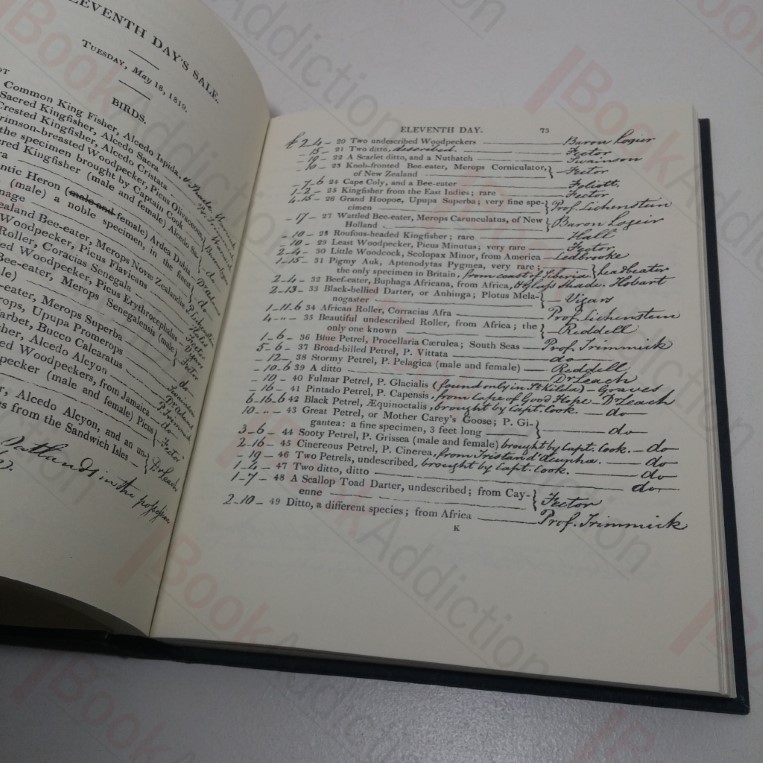 ELEVENTH DAY'S SALE.
TUESDAY, May 18, 1819.
BIRDS.
Common King Fisher, Alcedo Ispida
Sacred Kingfisher, Alcedo Sacra
Crested Kingfisher, Alcedo Cristata
Crimson-breasted Woodpecker, Picus Olivaceus
the specimen brought by Captain
Sacred Kingfisher (male and female) Alced. Sacra
Gigantic Heron (male and female) Ardea Dubia
(male) a noble specimen, in the finest
Zealand Bee-eater, Merops Novæ Zealandiæ
Woodpecker, Picus Flavipes
Roller, Coracias Senegal
Woodpecker, Picus Erythrocephalus
Bee-eater, Merops Senegalensis (male)
Bee-eater, Merops Superba
Upupa Promerops
Barbet, Bucco Calcaratus
Kingfisher, Alcedo Alcyon
Woodpeckers, from Jamaica
Woodpecker (male and female) Picus
Alcedo Alcyon, and an un-
from the Sandwich Isles
Dr Leach
in the possession
ELEVENTH DAY. 73
£ 2.4 – 20 Two undescribed Woodpeckers Baron Logier
5 – 21 Two ditto, described. Fector
19 – 22 A Scarlet ditto, and a Nuthatch Swainson
10 – 23 Knob-fronted Bee-eater, Merops Corniculator, of New Zealand Fector
7.6 24 Cape Coly, and a Bee-eater Foliott
1.12 – 25 Kingfisher from the East Indies; rare Fector
4.15 – 26 Grand Hoopoe, Upupa Superba; very fine specimen Prof. Lichenstein
17 – 27 Wattled Bee-eater, Merops Carunculatus, of New Holland Baron Logeir
10 – 28 Roufous-headed Kingfisher; rare Hall
10 – 29 Least Woodpecker, Picus Minutus; very rare Fector
2.4 – 30 Little Woodcock, Scolopax Minor, from America Ledbrooke
1.15 – 31 Pigmy Auk, Aptenodytas Pygmea, very rare; the only specimen in Britain, from coast of Siberia Lea Heater
2.4 – 32 Beef-eater, Buphaga Africana, from Africa, Hobart
2.13 – 33 Black-bellied Darter, or Anhinga; Plotus Melanogaster Vigars
1.11.6 34 African Roller, Corracias Afra Prof. Lichenstein
4 – 35 Beautiful undescribed Roller, from Africa; the only one known Reddell
1.6 – 36 Blue Petrel, Procellaria Cærulea; South Seas Prof. Trimmick
5.6 – 37 Broad-billed Petrel, P. Vittata do
12 – 38 Stormy Petrel, P. Pelagica (male and female) Reddell
10.6 39 A ditto Dr Leach
10 – 40 Fulmar Petrel, P. Glacialis (found only in St Kilda) – Graves
16 – 41 Pintado Petrel, P. Capensis, from Cape of Good Hope – Dr Leach
6.16.6 42 Black Petrel, Æquinoctalis, brought by Capt. Cook. – do
10 – 43 Great Petrel, or Mother Carey's Goose; P. Gigantea: a fine specimen, 3 feet long do
3.6 – 44 Sooty Petrel, P. Grissea (male and female) brought by Capt. Cook. – do
2.16 – 45 Cinereous Petrel, P. Cinerea, from Tristan d'Acunha. – do
19 – 46 Two Petrels, undescribed, brought by Capt. Cook. do
1.4 – 47 Two ditto, ditto do
1.7 – 48 A Scallop Toad Darter, undescribed; from Cayenne Fector
2.10 – 49 Ditto, a different species; from Africa Prof. Trimmick
K